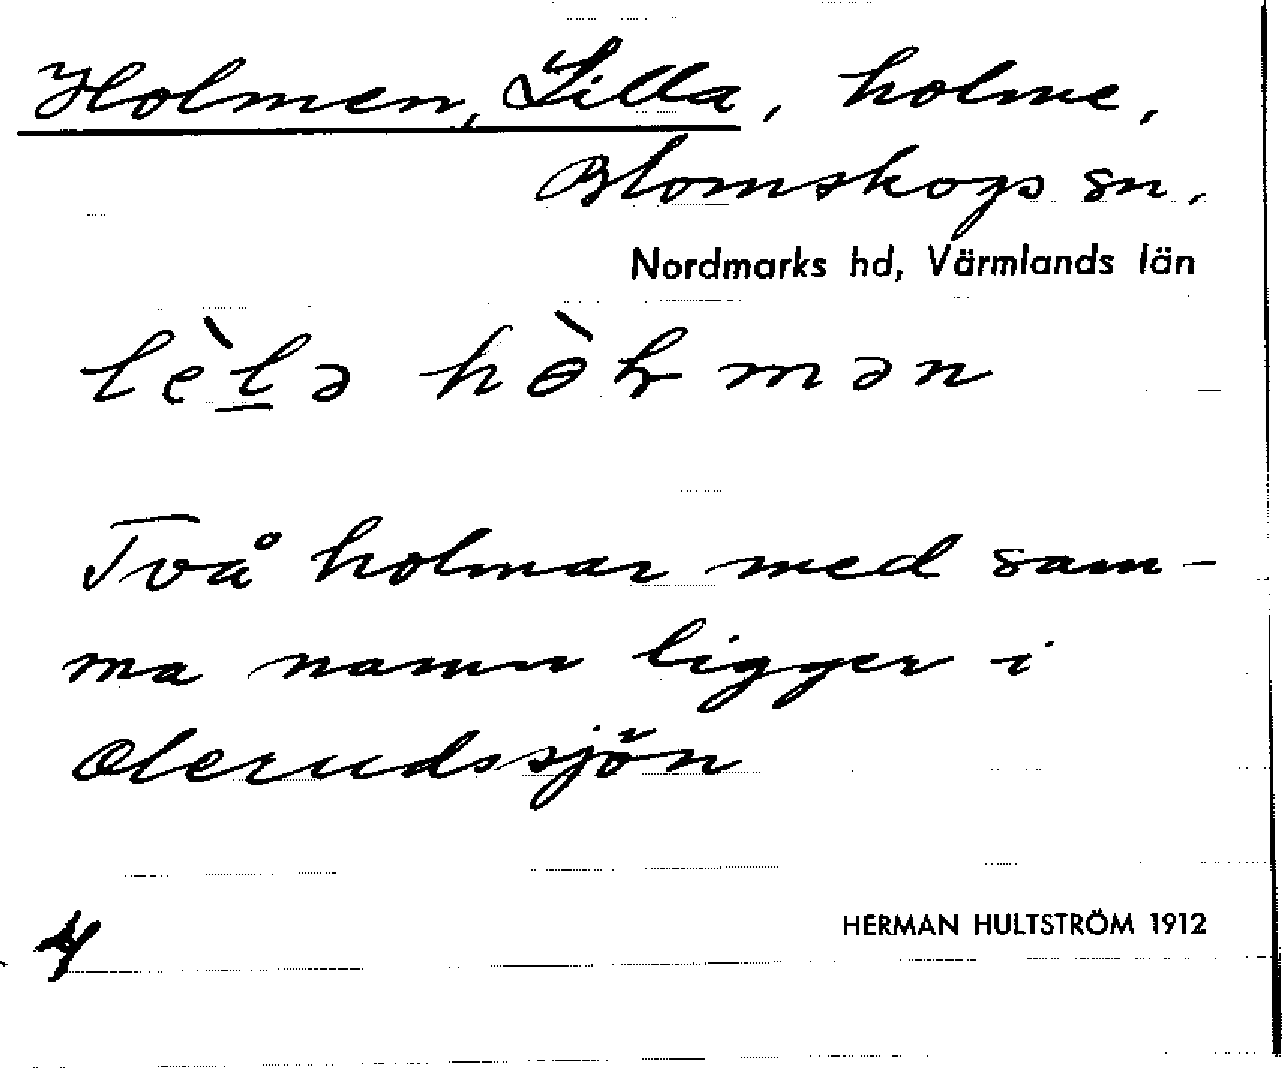 Holmen, Lilla, holme,
Blomskogs sn.
Nordmarks hd, Värmlands län
lèl̲ə hɵ̀ɫmən
Två holmar med sam-
ma namn ligger i
Olerudssjön
4
HERMAN HULTSTRÖM 1912